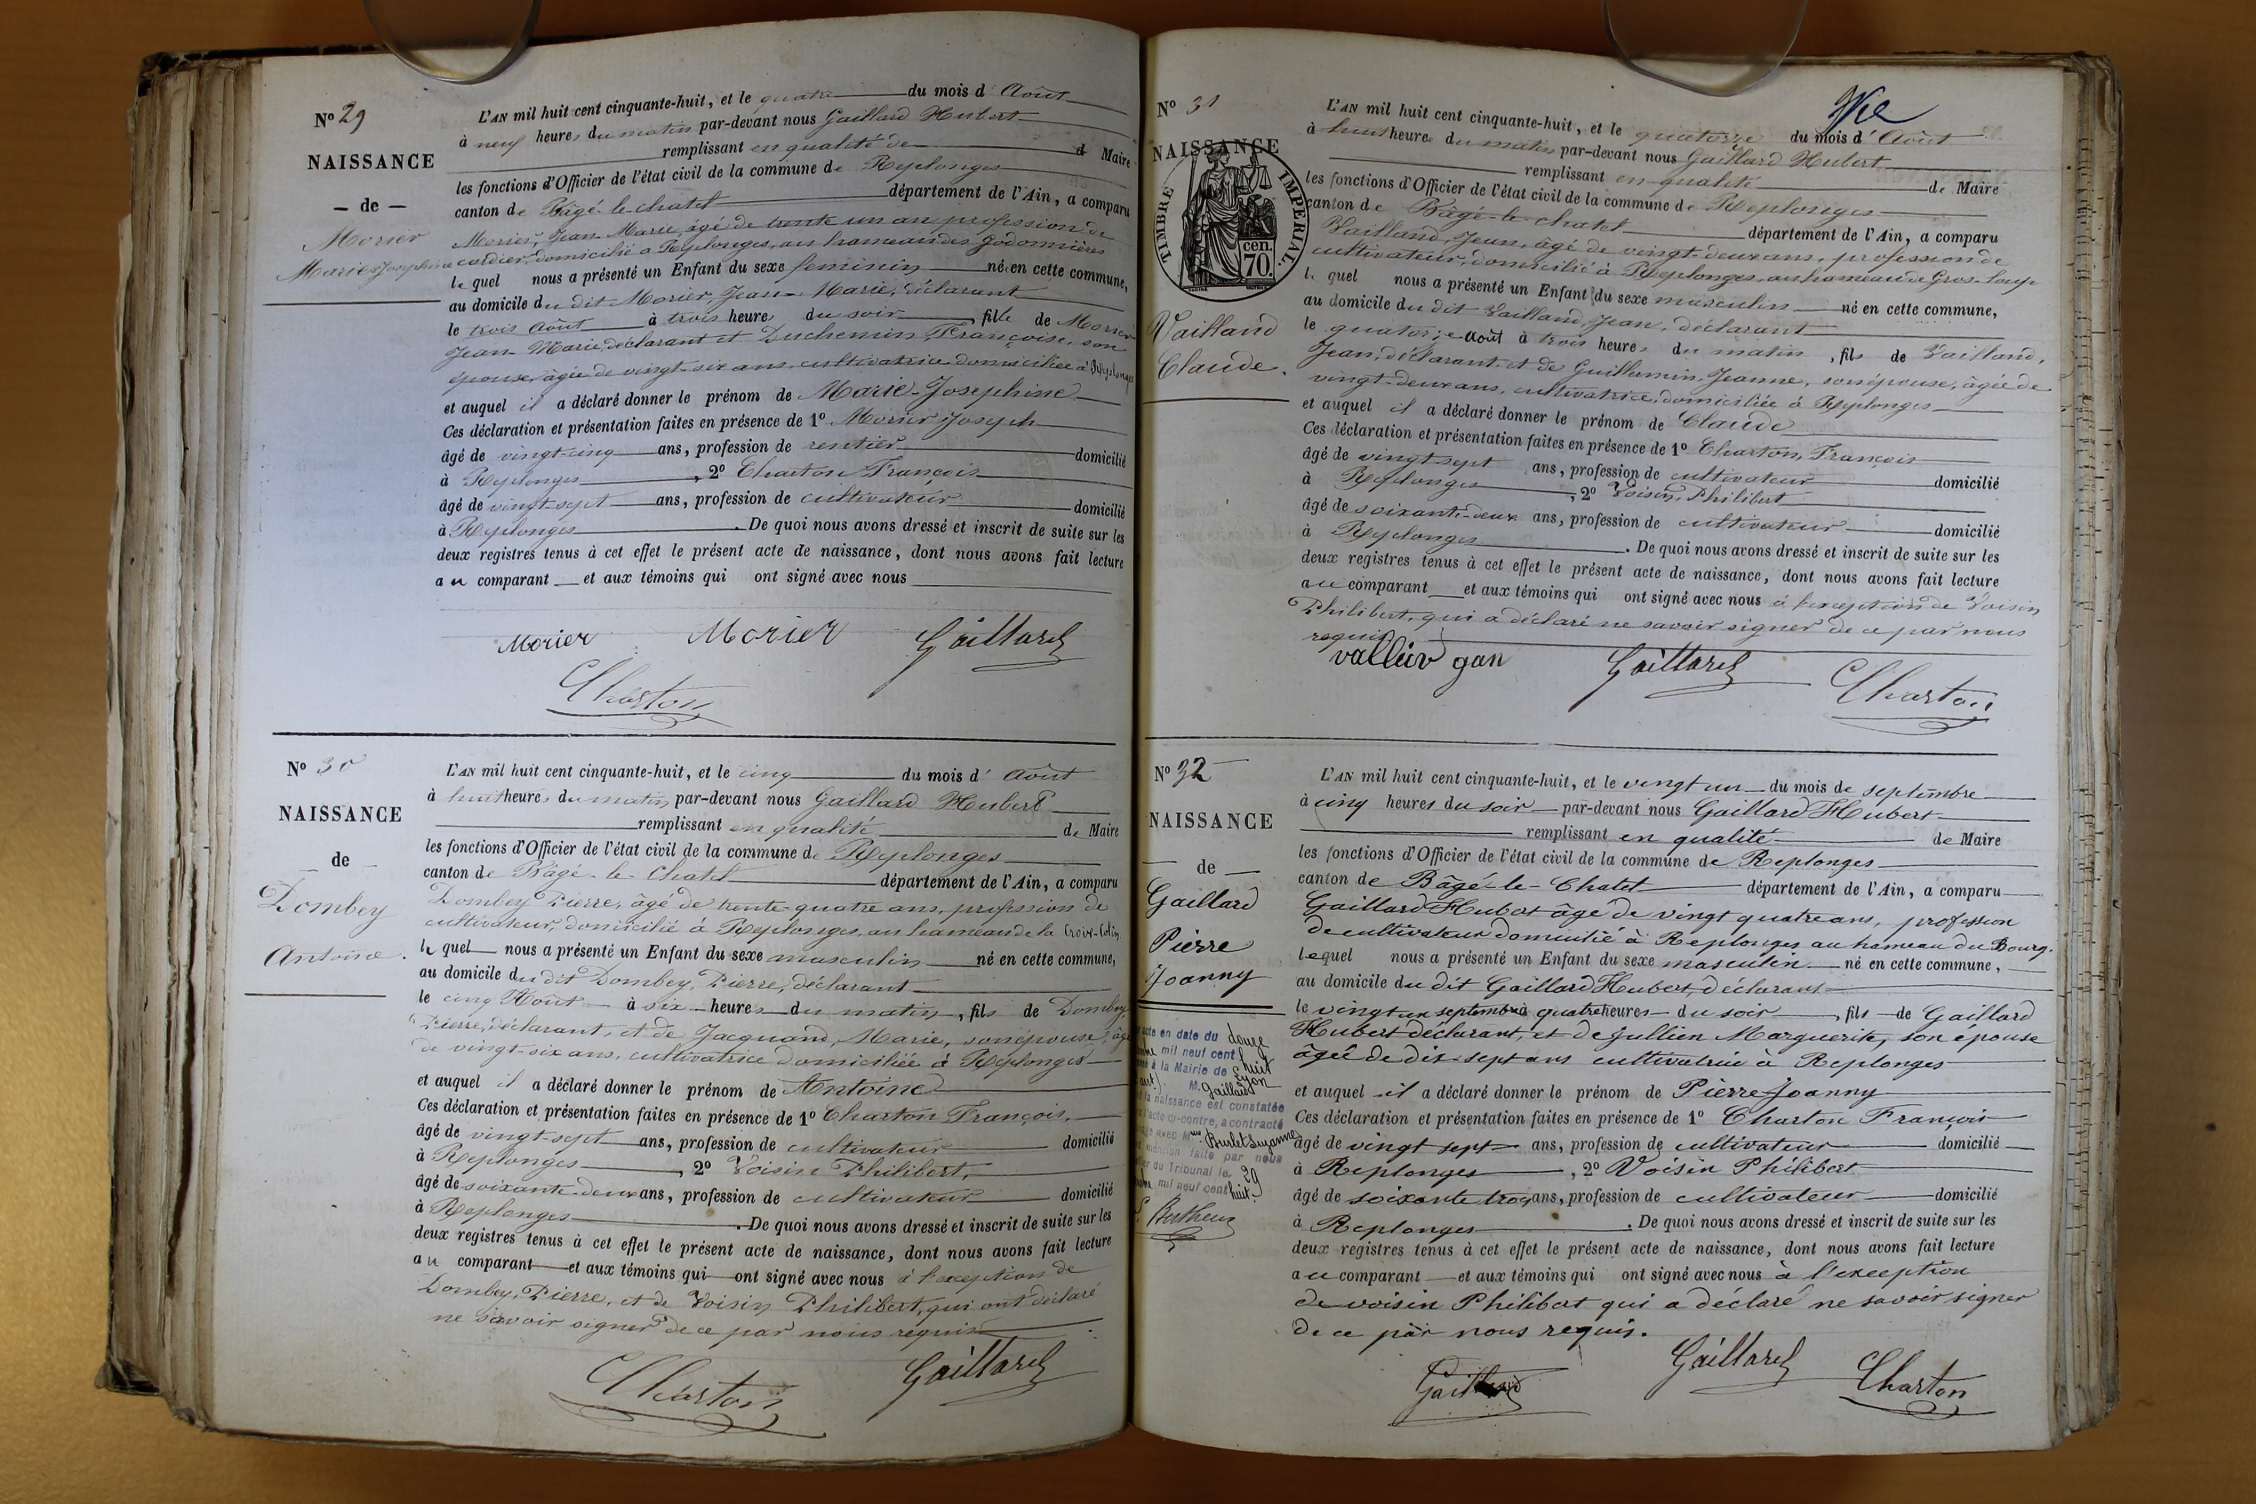 N° 29
NAISSANCE
— de —
Morier
Marie Josephine
L'AN mil huit cent cinquante-huit, et le quatre du mois d' Août
à neuf heures du matin par-devant nous Gaillard Hubert
remplissant en qualité de d Maire
les fonctions d'Officier de l'état civil de la commune de Replonges
canton de Bâgé-le-chatel département de l'Ain, a comparu
Morier, Jean-Marie, âgé de trente un an, profession de
cordier, domicilié à Replonges, au hameau des Godonnières
le quel nous a présenté un Enfant du sexe feminin né en cette commune,
au domicile du dit Morier, Jean-Marie, déclarant
le trois Août à trois heures du soir, fille de Morier
Jean-Marie, déclarant et Duchemin, Françoise, son
épouse, âgée de vingt-six ans, cultivatrice domiciliée à Replonges
et auquel il a déclaré donner le prénom de Marie-Josephine
Ces déclaration et présentation faites en présence de 1° Morier Joseph
âgé de vingt-cinq ans, profession de rentier domicilié
à Replonges, 2° Charton François
âgé de vingt-sept ans, profession de cultivateur domicilié
à Replonges. De quoi nous avons dressé et inscrit de suite sur les
deux registres tenus à cet effet le présent acte de naissance, dont nous avons fait lecture
au comparant et aux témoins qui ont signé avec nous
Morier Morier Gaillard
Charton
N° 30
NAISSANCE
de
Dombey
Antoine.
L'AN mil huit cent cinquante-huit, et le cinq du mois d' Août
à huit heures du matin par-devant nous Gaillard Hubert
remplissant en qualité de Maire
les fonctions d'Officier de l'état civil de la commune de Replonges
canton de Bâgé-le-Chatel département de l'Ain, a comparu
Dombey Pierre, âgé de trente-quatre ans, profession de
cultivateur, domicilié à Replonges, au hameau de la Croix-Colin
le quel nous a présenté un Enfant du sexe masculin né en cette commune,
au domicile du dit Dombey, Pierre, déclarant
le cinq Août à six heures du matin, fils de Dombey
Pierre, déclarant, et de Jacquand, Marie, son épouse, âgée
de vingt-six ans, cultivatrice domiciliée à Replonges
et auquel il a déclaré donner le prénom de Antoine
Ces déclaration et présentation faites en présence de 1° Charton François,
âgé de vingt-sept ans, profession de cultivateur domicilié
à Replonges, 2° Voisin Philibert,
âgé de soixante-deux ans, profession de cultivateur domicilié
à Replonges. De quoi nous avons dressé et inscrit de suite sur les
deux registres tenus à cet effet le présent acte de naissance, dont nous avons fait lecture
au comparant et aux témoins qui ont signé avec nous à l'exception de
Dombey, Pierre, et de Voisin Philibert, qui ont déclaré
ne savoir signer de ce par nous requis
Charton Gaillard
N° 31
NAISSANCE
TIMBRE IMPERIAL.
cen.
70.
Vailland
Claude.
L'AN mil huit cent cinquante-huit, et le quatorze du mois d' Août
à huit heures du matin par-devant nous Gaillard Hubert
remplissant en qualité de Maire
les fonctions d'Officier de l'état civil de la commune de Replonges
canton de Bâgé-le-chatel département de l'Ain, a comparu
Vailland, Jean, âgé de vingt-deux ans, profession de
cultivateur, domicilié à Replonges, au hameau de Gros-Loup
le quel nous a présenté un Enfant du sexe masculin né en cette commune,
au domicile du dit Vailland, Jean, déclarant
le quatorze Août à trois heures du matin, fils de Vailland,
Jean, déclarant et de Guillemin, Jeanne, son épouse, âgée de
vingt-deux ans, cultivatrice, domiciliée à Replonges
et auquel il a déclaré donner le prénom de Claude
Ces déclaration et présentation faites en présence de 1° Charton, François
âgé de vingt-sept ans, profession de cultivateur domicilié
à Replonges, 2° Voisin, Philibert
âgé de soixante-deux ans, profession de cultivateur domicilié
à Replonges. De quoi nous avons dressé et inscrit de suite sur les
deux registres tenus à cet effet le présent acte de naissance, dont nous avons fait lecture
au comparant et aux témoins qui ont signé avec nous à l'exception de Voisin
Philibert, qui a déclaré ne savoir signer de ce par nous
requis
gan Gaillard Charton
N° 32
NAISSANCE
de
Gaillard
Pierre
Joanny
acte en date du douze
mil neuf cent huit
à la Mairie de Lyon
M. Gaillard
la naissance est constatée
l'acte ci-contre, a contracté
avec M Suzanne
mention faite par nous
du Tribunal le 29
mil neuf cent huit.
Bertheux
L'AN mil huit cent cinquante-huit, et le vingt un du mois de septembre
à cinq heures du soir par-devant nous Gaillard Hubert
remplissant en qualité de Maire
les fonctions d'Officier de l'état civil de la commune de Replonges
canton de Bâgé-le-Chatel département de l'Ain, a comparu
Gaillard Hubert âgé de vingt quatre ans, profession
de cultivateur domicilié à Replonges au hameau du Bourg.
lequel nous a présenté un Enfant du sexe masculin né en cette commune,
au domicile du dit Gaillard Hubert, déclarant
le vingt un septembre à quatre heures du soir, fils de Gaillard
Hubert déclarant, et de Jullien Marguerite, son épouse
âgée de dix-sept ans cultivatrice à Replonges
et auquel il a déclaré donner le prénom de Pierre Joanny
Ces déclaration et présentation faites en présence de 1° Charton François
âgé de vingt sept ans, profession de cultivateur domicilié
à Replonges, 2° Voisin Philibert
âgé de soixante trois ans, profession de cultivateur domicilié
à Replonges. De quoi nous avons dressé et inscrit de suite sur les
deux registres tenus à cet effet le présent acte de naissance, dont nous avons fait lecture
au comparant et aux témoins qui ont signé avec nous à l'exception
de voisin Philibert qui a déclaré ne savoir signer
de ce par nous requis.
Gaillard Gaillard Charton